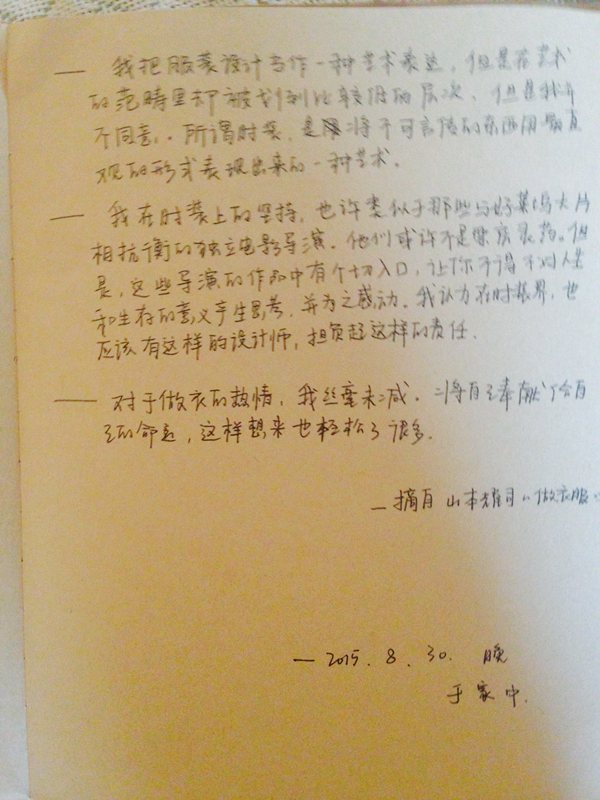 —— 我把服装设计当作一种艺术表达，但是在艺术
的范畴里却被划到比较低的层次，但是我并
不同意。所谓时装，是将不可言传的东西用直
观的形式表现出来的一种艺术。
—— 我在时装上的坚持，也许类似于那些与好莱坞大片
相抗衡的独立电影导演。他们或许不是票房灵药。但
是，这些导演的作品中有个切入口，让你不得不对人生
和生存的意义产生思考，并为之感动。我认为在时装界，也
应该有这样的设计师，担负起这样的责任。
—— 对于做衣的热情，我丝毫未减。将自己奉献给自
己的命运，这样想来也轻松了很多。
— 摘自 山本耀司《做衣服》
— 2015.8.30. 晚
于家中.